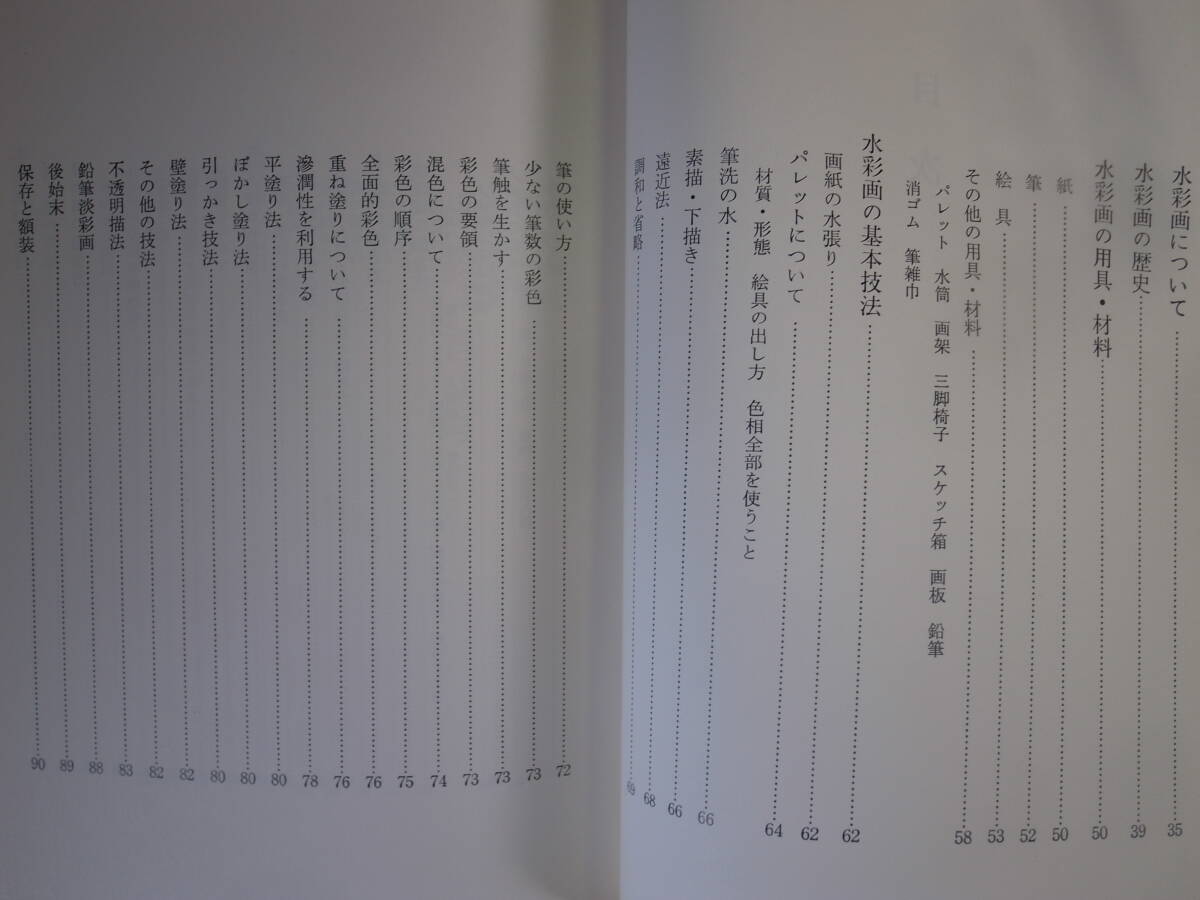 水彩画について……35
水彩画の歴史……39
水彩画の用具・材料……50
紙……50
筆……52
絵　具……53
その他の用具・材料……58
パレット　水筒　画架　三脚椅子　スケッチ箱　画板　鉛筆
消ゴム　筆雑巾
水彩画の基本技法……62
画紙の水張り……62
パレットについて……64
材質・形態　絵具の出し方　色相全部を使うこと
筆洗の水……66
素描・下描き……66
遠近法……68
調和と省略……69
筆の使い方……72
少ない筆数の彩色……73
筆触を生かす……73
彩色の要領……73
混色について……74
彩色の順序……75
全面的彩色……76
重ね塗りについて……76
滲潤性を利用する……78
平塗り法……80
ぼかし塗り法……80
引っかき技法……80
壁塗り法……82
その他の技法……82
不透明描法……83
鉛筆淡彩画……88
後始末……89
保存と額装……90